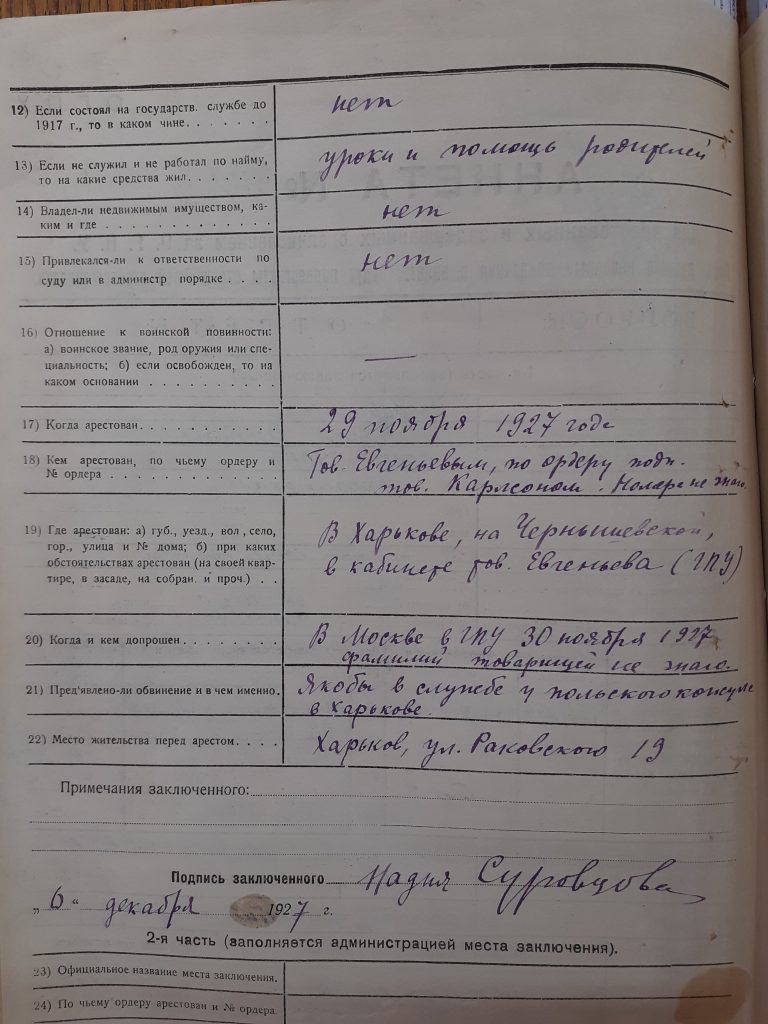 12) Если состоял на государств. службе до
1917 г., то в каком чине. . . . . . .
нет
13) Если не служил и не работал по найму,
то на какие средства жил. . . . . . .
уроки и помощь родителей
14) Владел-ли недвижимым имуществом, ка-
ким и где . . . . . . . . . . . . . .
нет
15) Привлекался-ли к ответственности по
суду или в администр порядке . . . .
нет
16) Отношение к воинской повинности:
а) воинское звание, род оружия или спе-
циальность; б) если освобожден, то на
каком основании . . . . . . . . . .
—
17) Когда арестован. . . . . . . . . . .
29 ноября 1927 года
18) Кем арестован, по чьему ордеру и
№ ордера . . . . . . . . . . . . .
Тов. Евгеньевым, по ордеру подп.
тов. Карлсоном. Номера не знаю.
19) Где арестован: а) губ., уезд., вол, село,
гор., улица и № дома; б) при каких
обстоятельствах арестован (на своей квар-
тире, в засаде, на собран. и проч.) . .
В Харькове, на Чернышевской,
в кабинете тов. Евгеньева (ГПУ)
20) Когда и кем допрошен . . . . . . . .
В Москве в ГПУ 30 ноября 1927
фамилий товарищей не знаю.
21) Пред'явлено-ли обвинение и в чем именно.
Якобы в службе у польского консула
в Харькове.
22) Место жительства перед арестом. . . .
Харьков, ул. Раковского 19
Примечания заключенного:
Подпись заключенного Надия Суровцова
„6“ декабря 1927 г.
2-я часть (заполняется администрацией места заключения).
23) Официальное название места заключения.
24) По чьему ордеру арестован и № ордера.